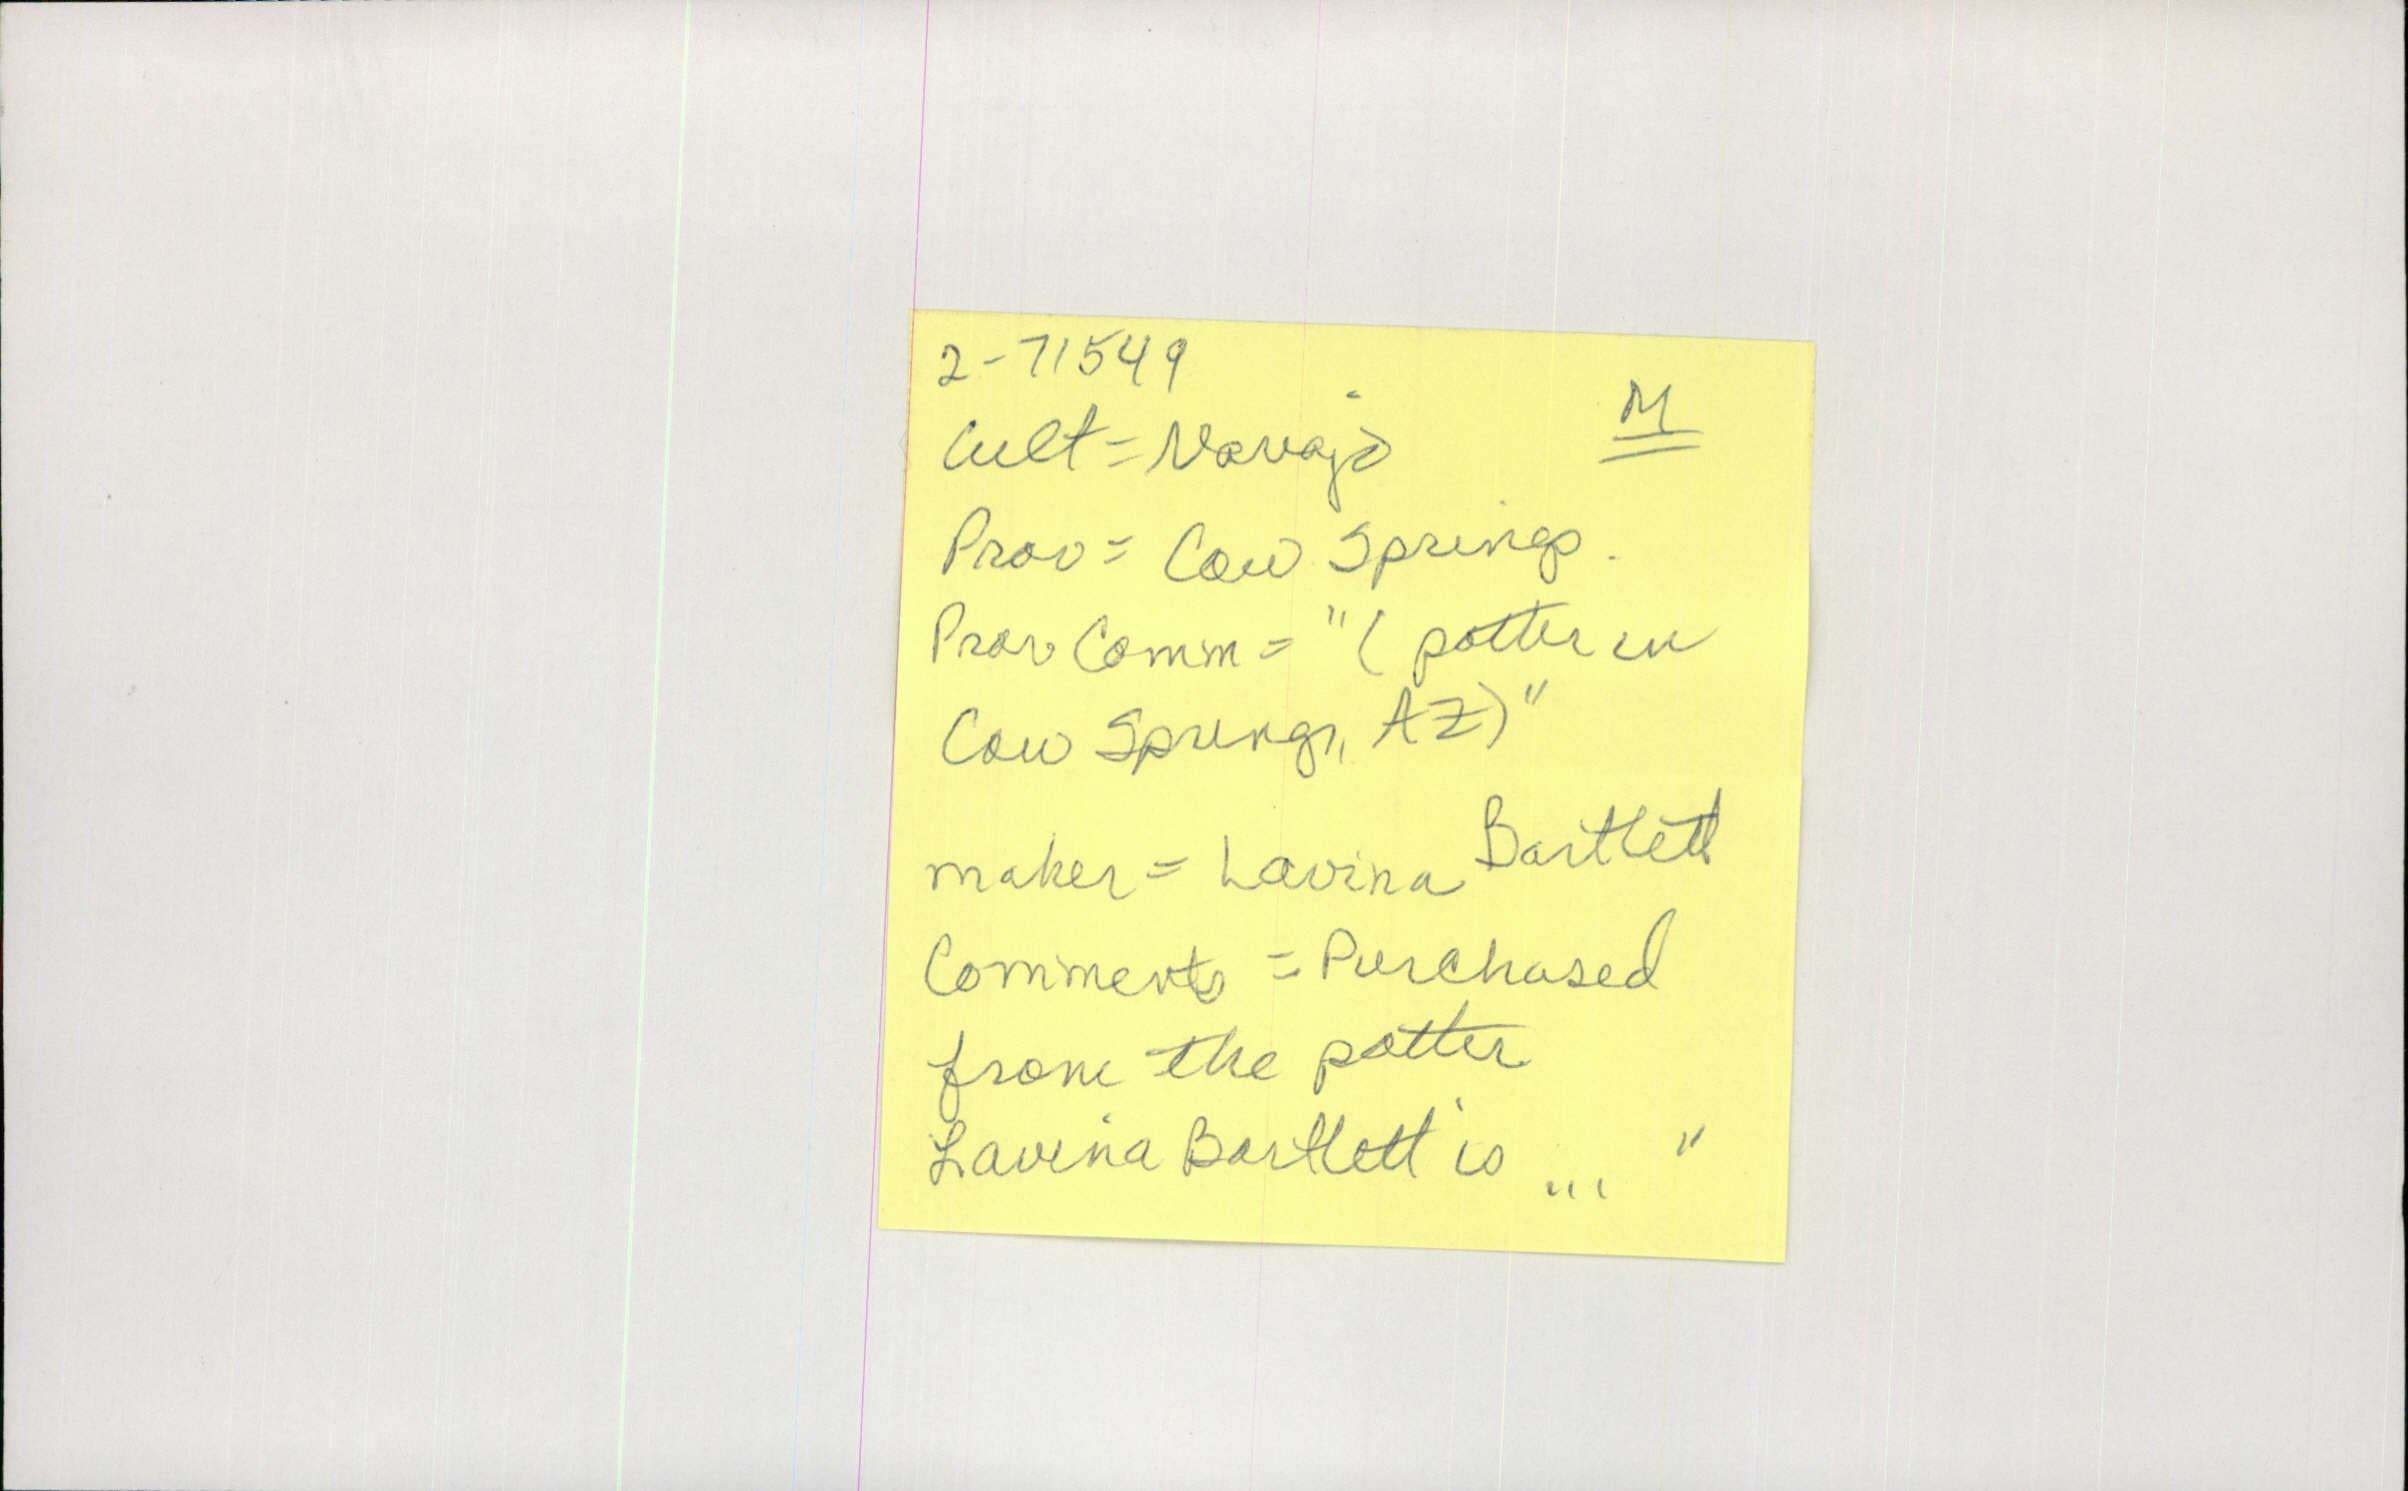 2-71549
M
Cult = Navajo
Prov = Cow Springs.
Prov Comm = "( potter in
Cow Springs, AZ)"
maker = Lavina Bartlett
Comments = Purchased
from the potter
Lavina Bartlett is ... "